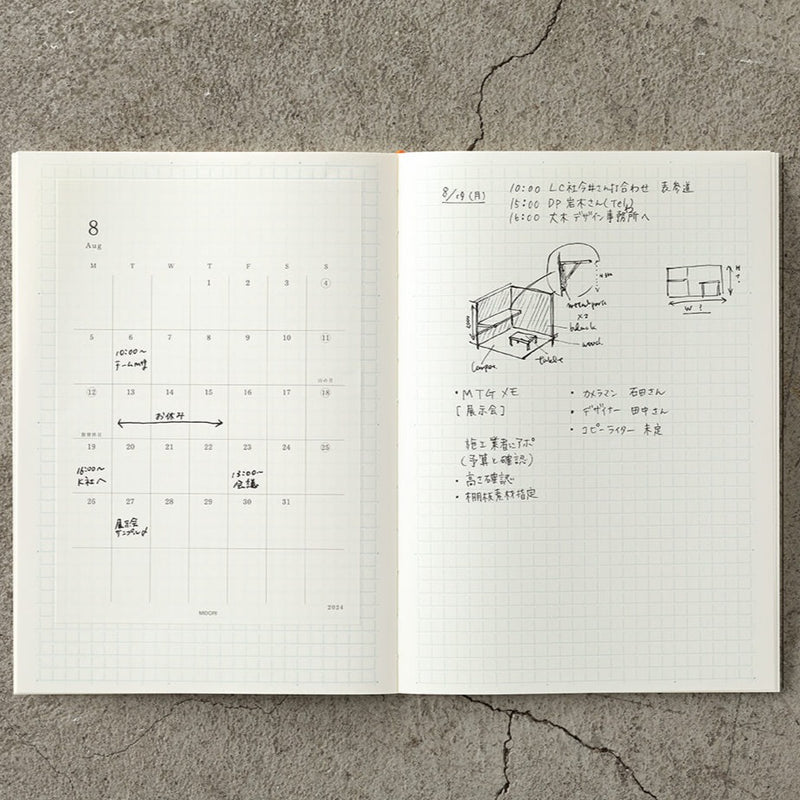 8
Aug
M T W T F S S
1 2 3 4
5 6 7 8 9 10 11
10:00～
チームmtg
山の日
12 13 14 15 16 17 18
お休み
振替休日
19 20 21 22 23 24 25
15:00～
K社へ
13:00～
会議
26 27 28 29 30 31
展示会
サンプル〆
MIDORI
2024
8/19(月)
10:00 LC社今井さん打合わせ 表参道
15:00 DP 岩木さん(Tel)
16:00 大木デザイン事務所へ
metal pipe
×2
black
wood
table
W?
H
?
・MTGメモ
[展示会]
施工業者にアポ
(予算と確認)
・高さ確認
・棚板素材指定
・カメラマン 石田さん
・デザイナー 田中さん
・コピーライター 未定